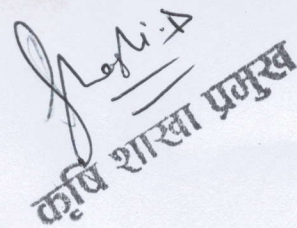 कृषि शाखा प्रमुख